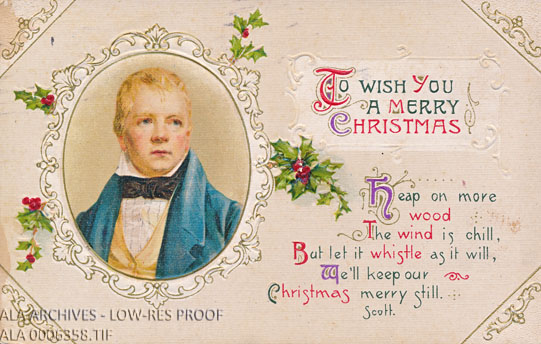 To wish you
a merry
Christmas
Heap on more
wood
The wind is chill,
But let it whistle as it will,
We'll keep our
Christmas merry still.
Scott.
ALA ARCHIVES - LOW-RES PROOF
ALA 0006358.TIF